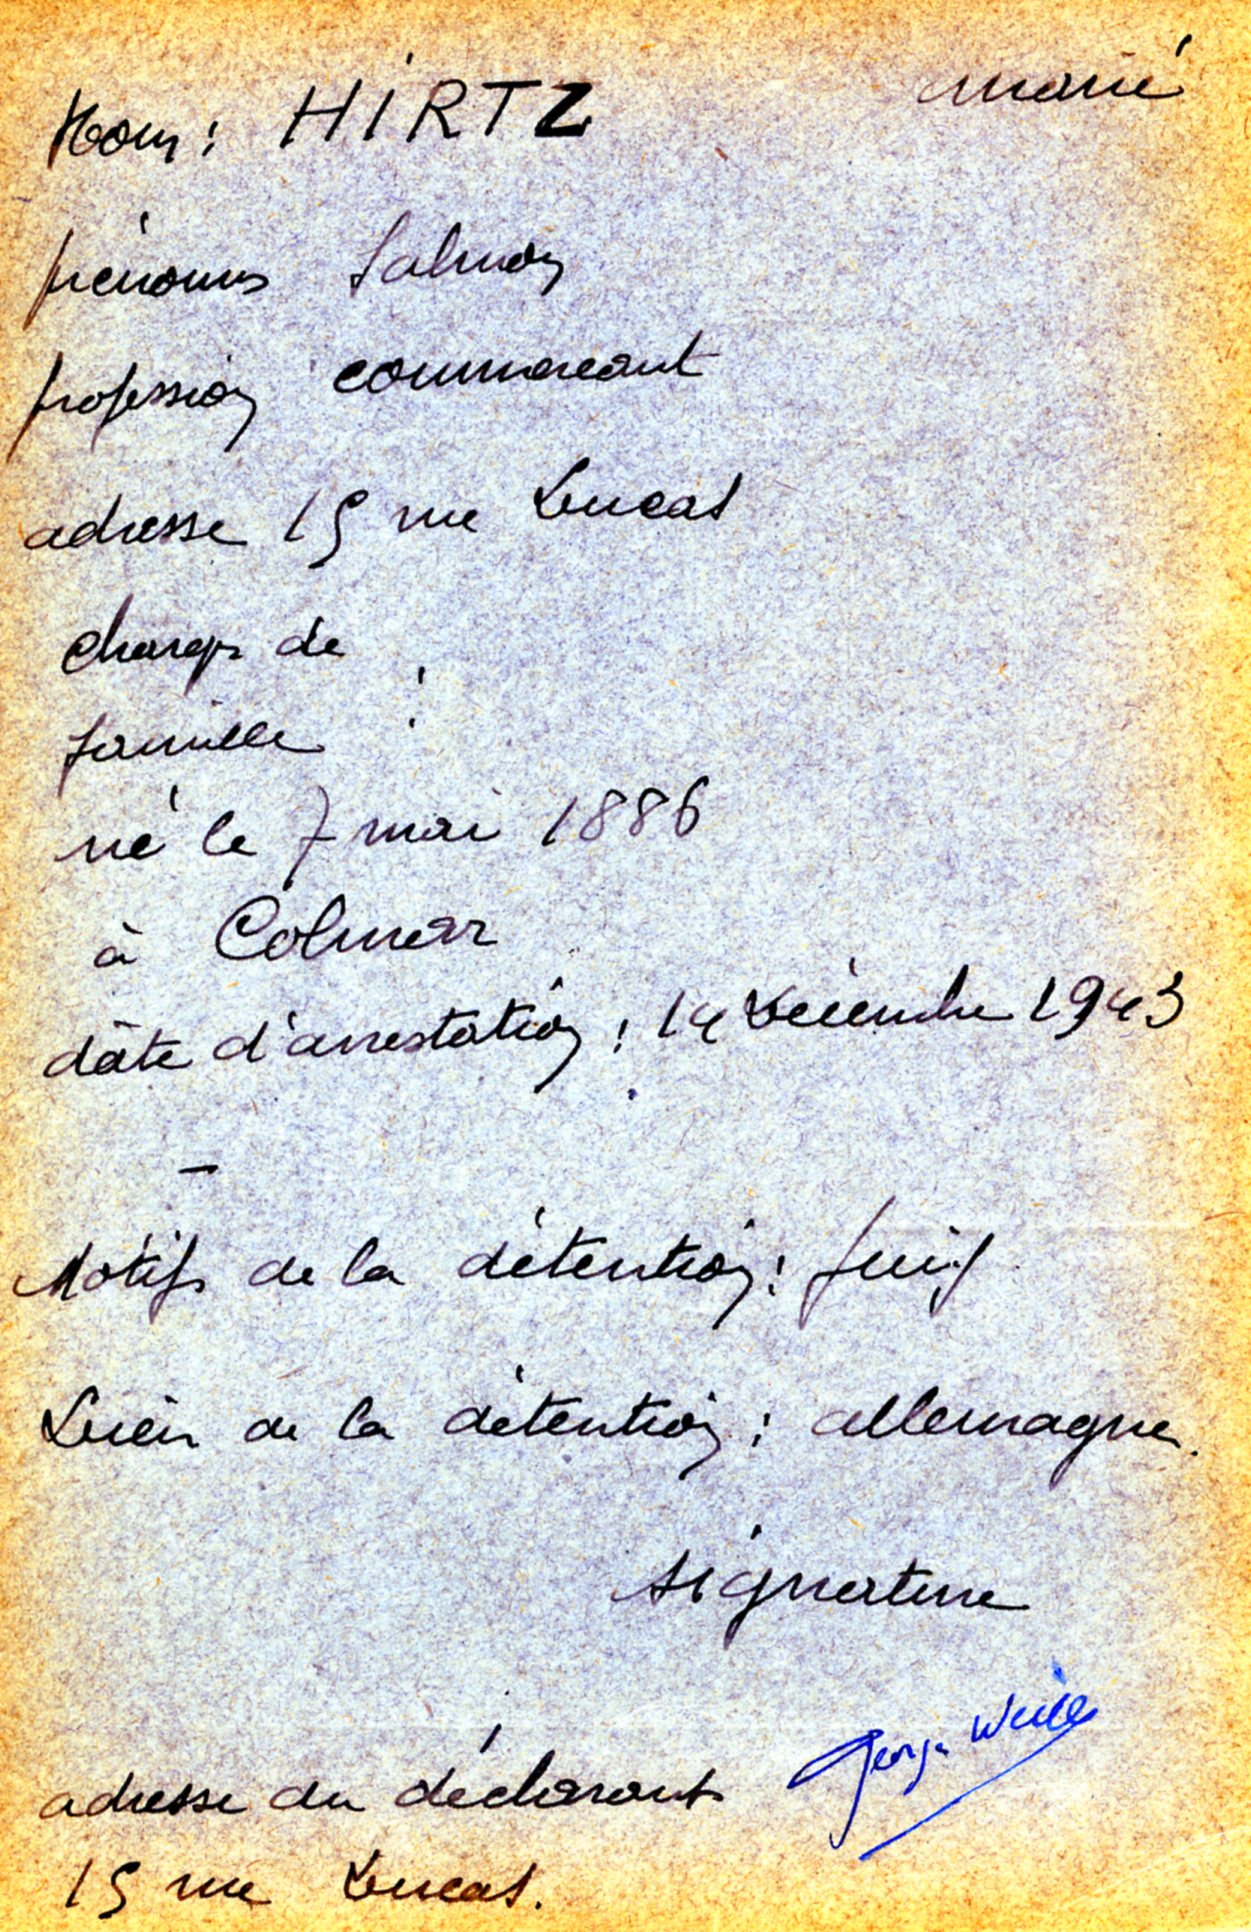 Nom : HIRTZ marié
prénoms Salmon
profession commercant
adresse 15 rue Lucas
charge de
famille :
né le 7 mai 1886
à Colmar
dâte d'arrestation : 14 Décembre 1943
-
Motifs de la détention : juif
Lieu de la détention : allemagne.
signature
Georges Weill
adresse du déclarant
15 rue Lucas.